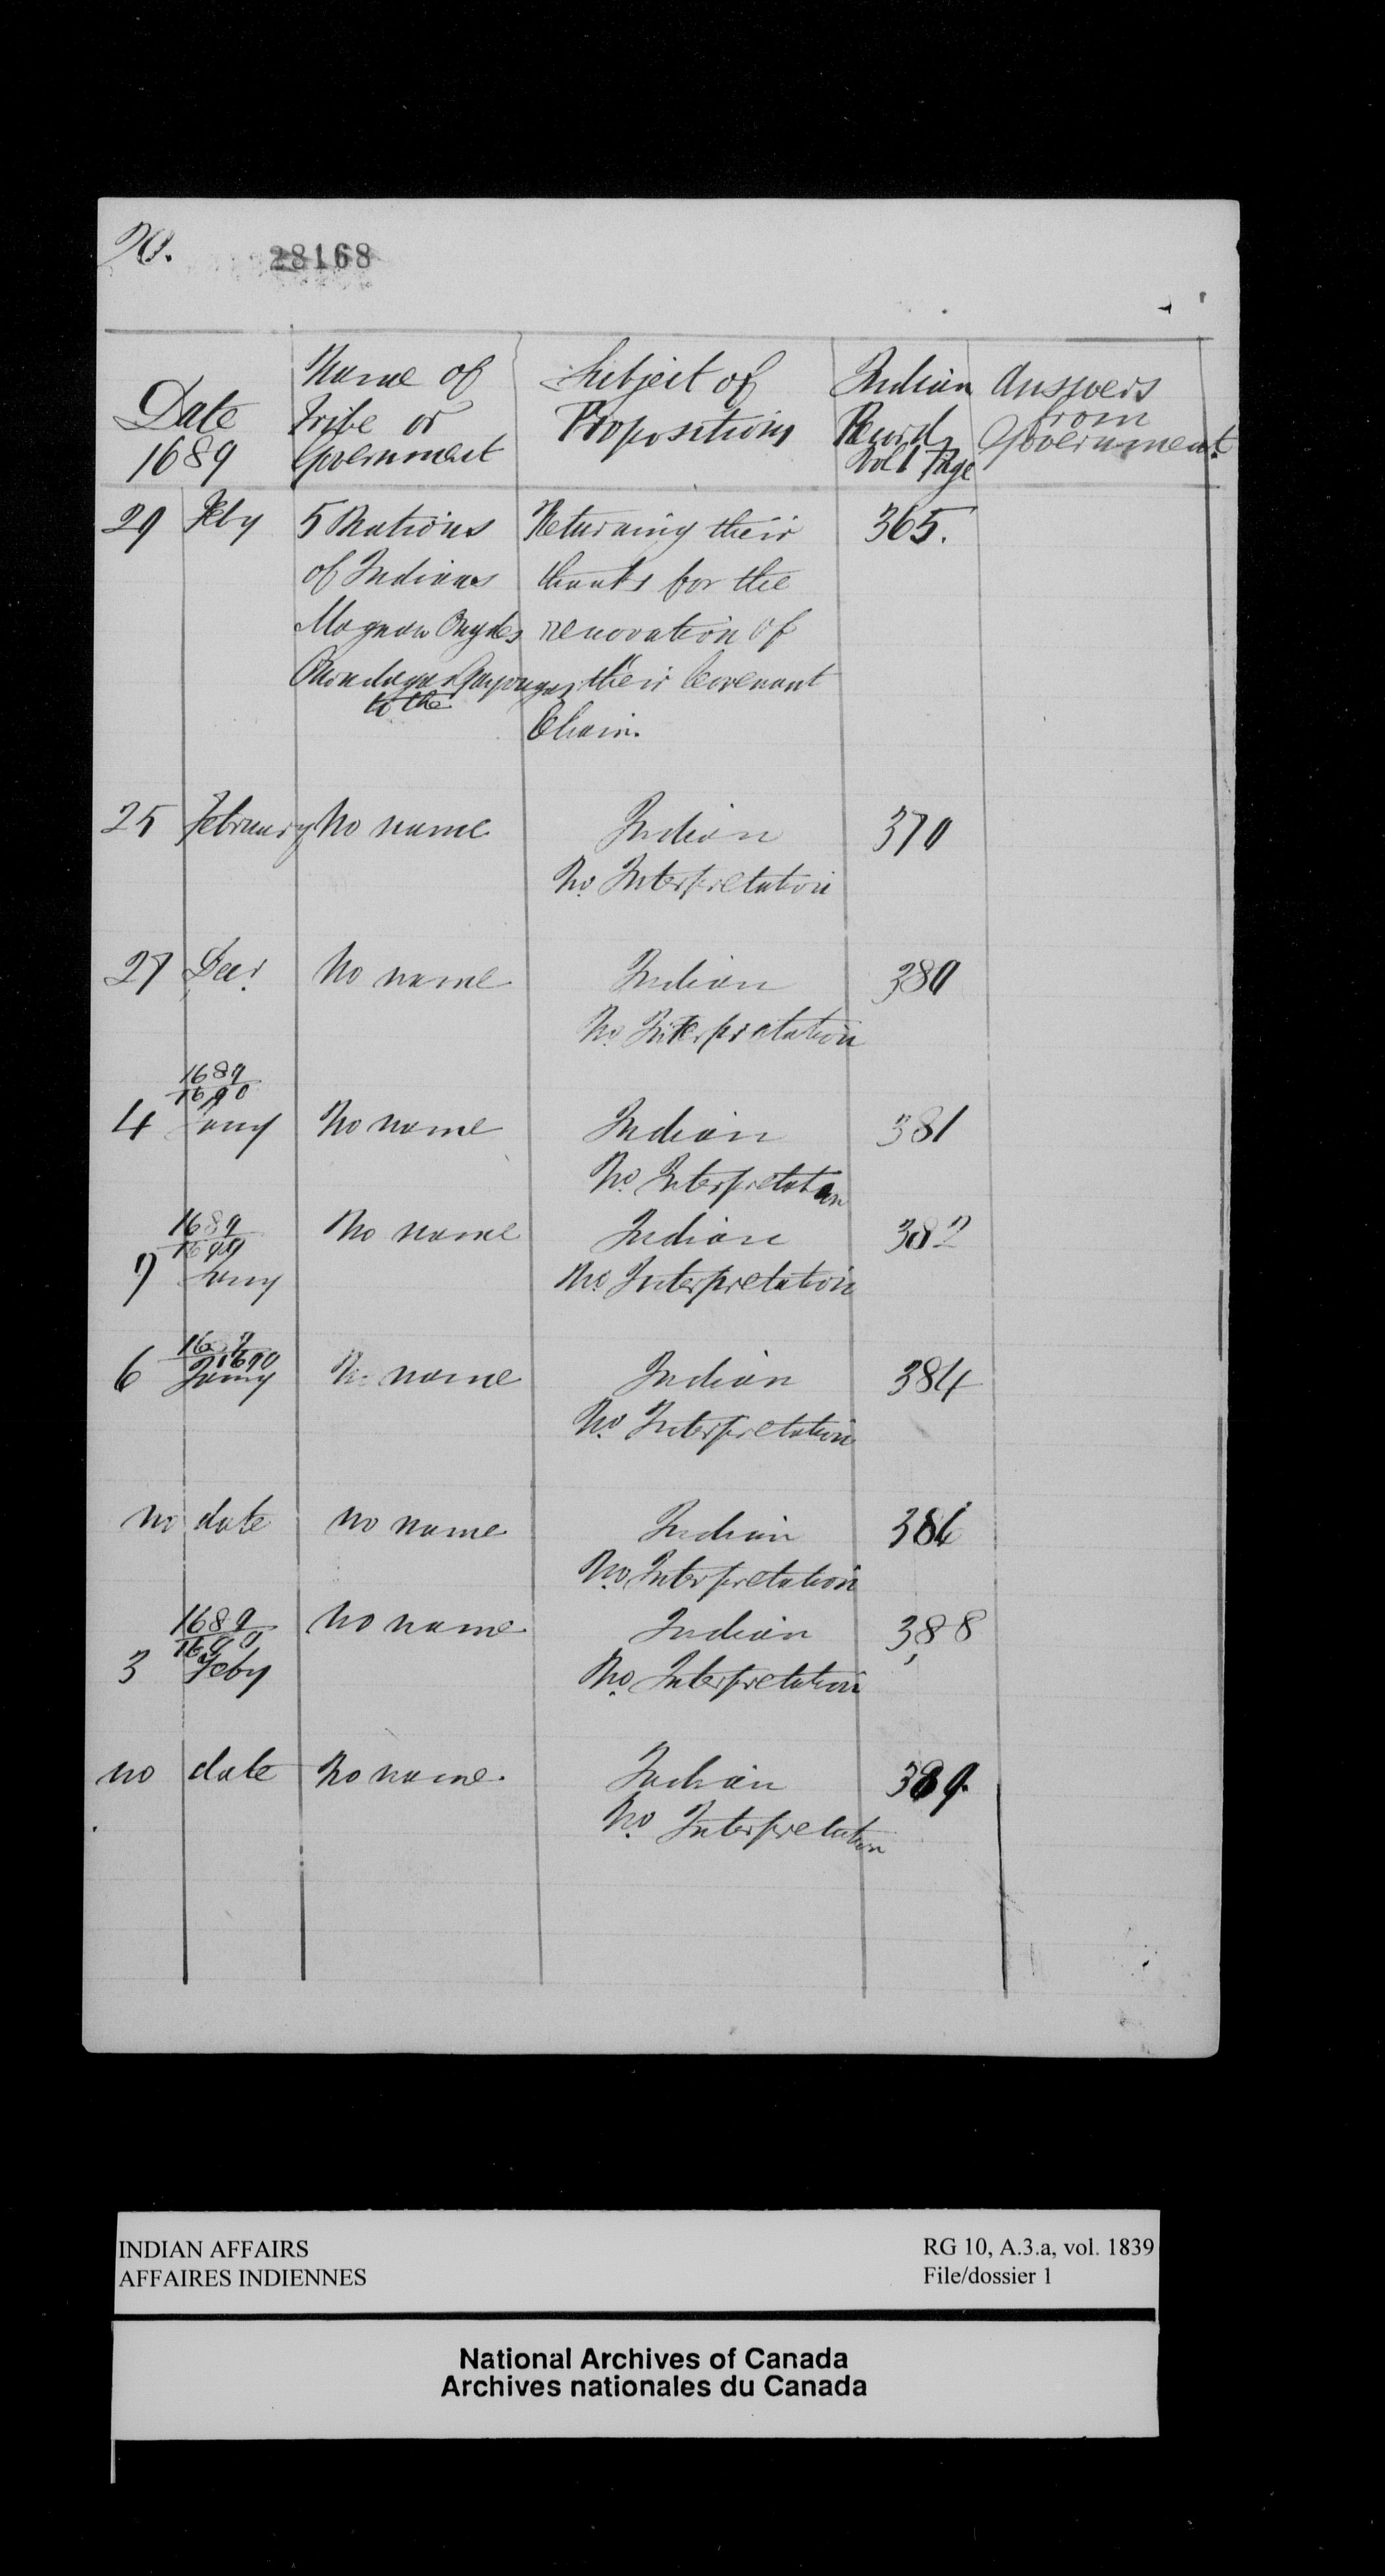 20.
28168
Date
1689
Name of
Tribe or
Government
Subject of
Propositions
Indian
Record
Vol 1 Page
Answers
from
Government
29 Feby 5 Nations Returning their 365.
of Indians thanks for the
Onydes renovation of
Onondagas Gayougas their Covenant
to the
Chain.
25 February No name Indian 370
No. Interpretation
27 Decr No name Indian 380
No. Interpretation
1689
1690
4 Jany No name Indian 381
No. Interpretation
1689
1690
No name Indian 382
7 Jany No. Interpretation
1689
1690
6 Jany No name Indian 384
No. Interpretation
no date no name Indian 386
No. Interpretation
1689
1690
No name Indian 388
3 Feby No. Interpretation
no date No name. Indian 389.
No. Interpretation
INDIAN AFFAIRS
AFFAIRES INDIENNES
RG 10, A.3.a, vol. 1839
File/dossier 1
National Archives of Canada
Archives nationales du Canada